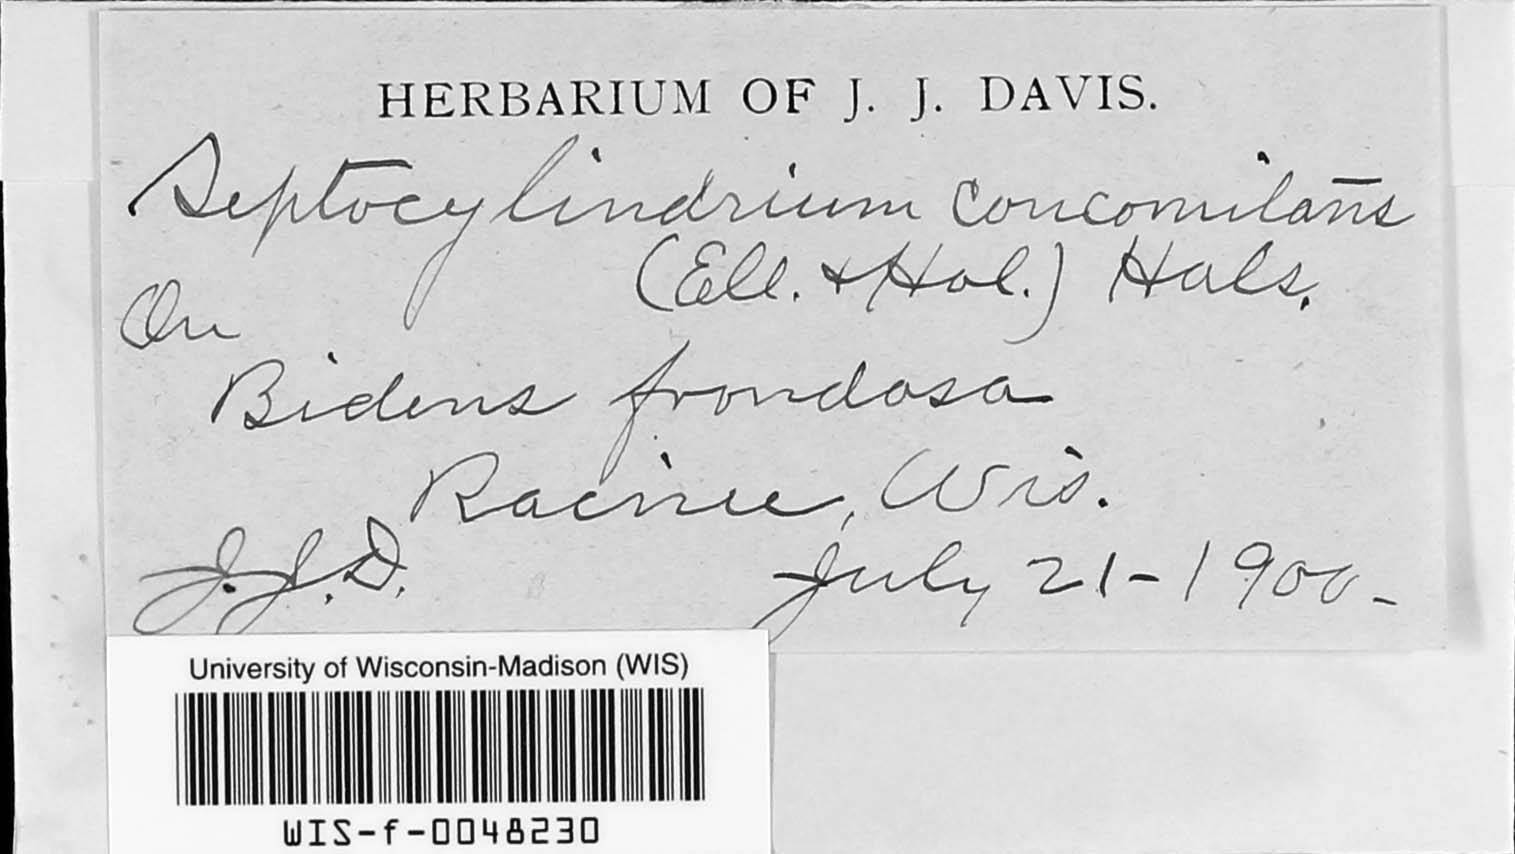 HERBARIUM OF J. J. DAVIS.
Septocylindrium concomitans
(Ell. & Hol.) Hals.
On
Bidens frondosa
Racine, Wis.
J. J. D. July 21-1900-
University of Wisconsin-Madison (WIS)
WIS-f-0048230